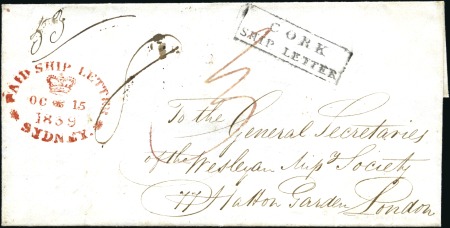 PAID SHIP LETTER
OC 15
1839
SYDNEY.
CORK
SHIP LETTER
To the
General Secretaries
of the Wesleyan Misy Society
77 Hatton Garden London